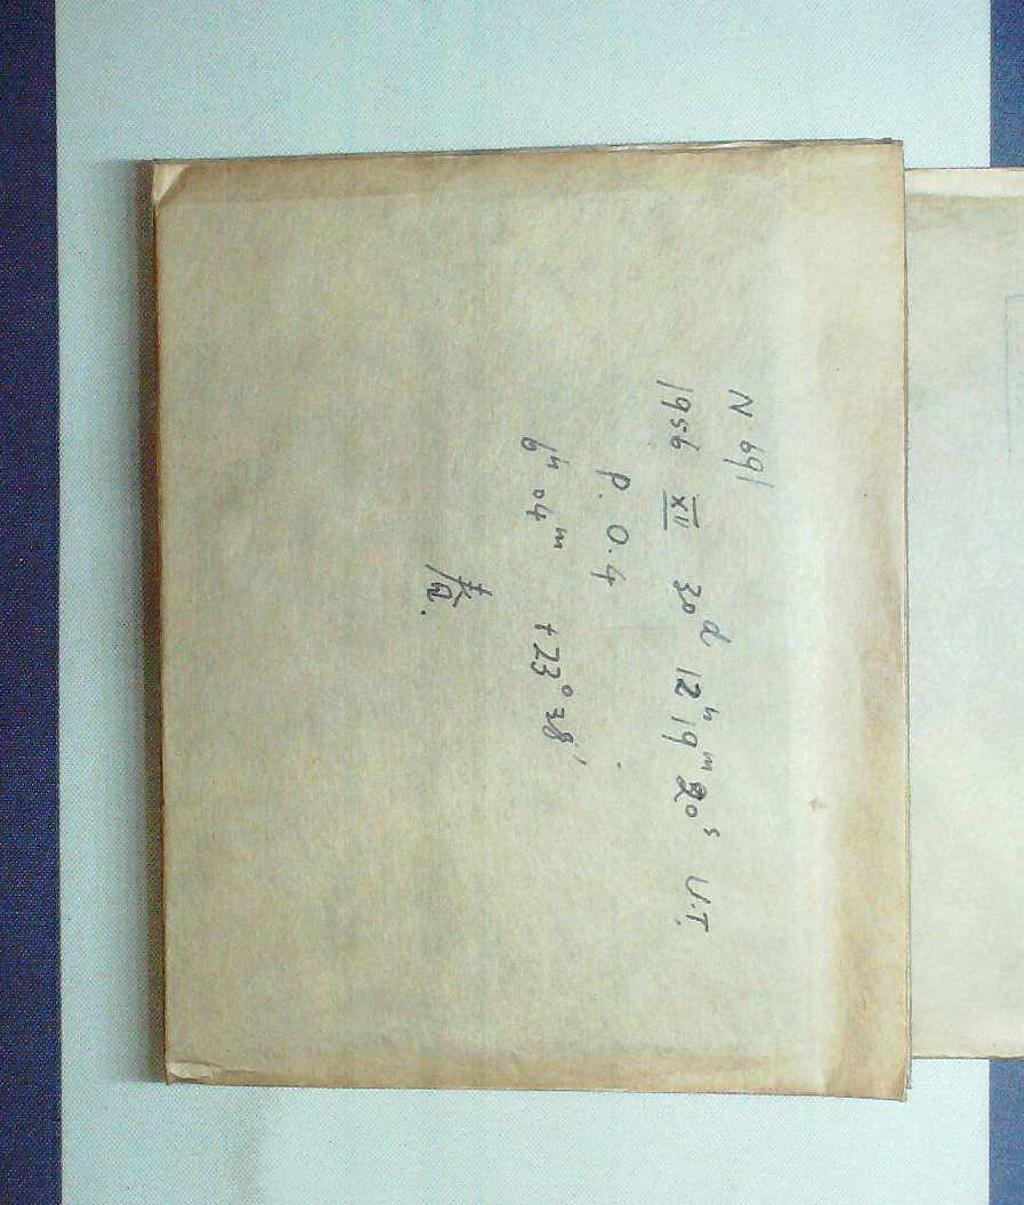 N 691
1956 XII 30ᵈ 12ʰ 19ᵐ 20ˢ U.T.
P. 0.4
6ʰ 04ᵐ +23° 38'